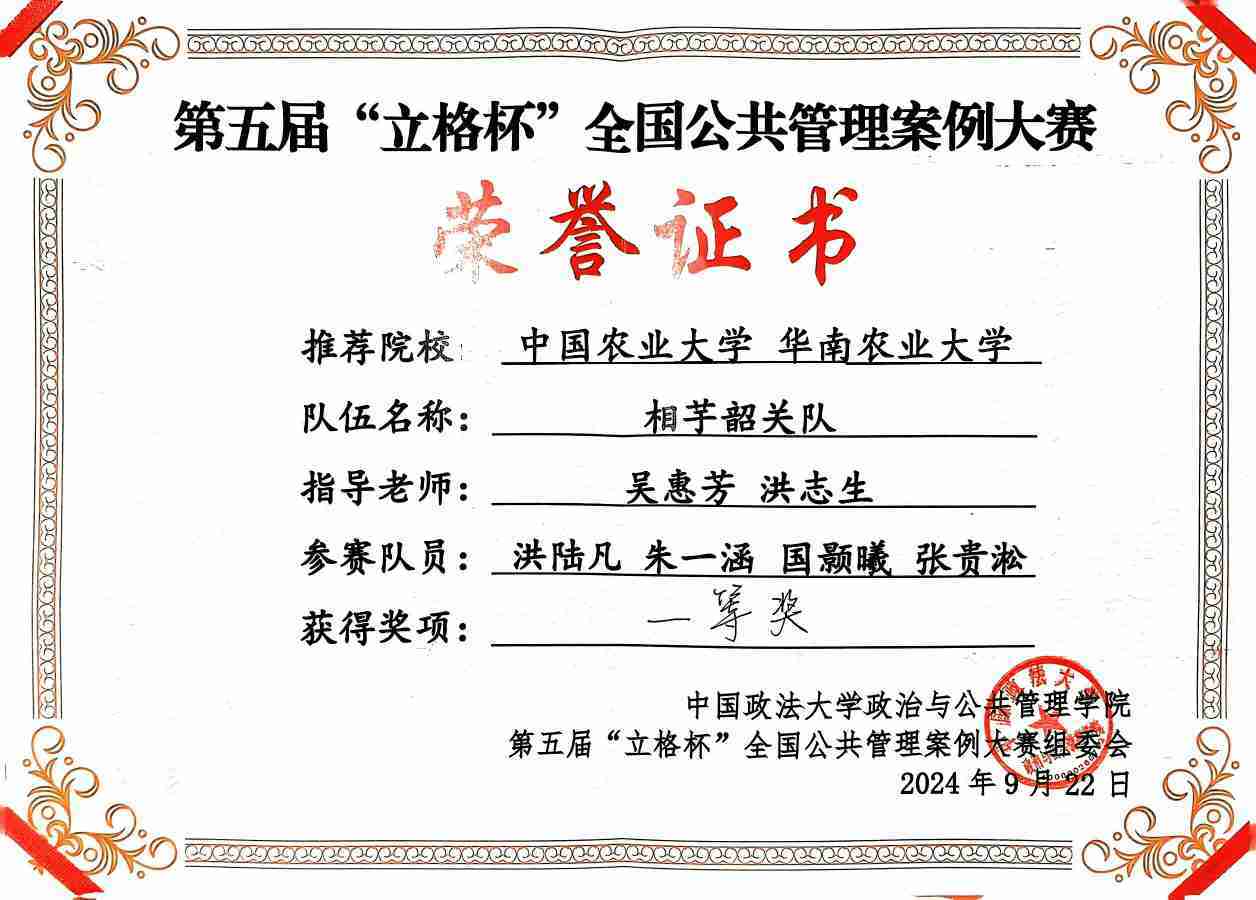 第五届“立格杯”全国公共管理案例大赛
荣誉证书
推荐院校: 中国农业大学 华南农业大学
队伍名称: 相芋韶关队
指导老师: 吴惠芳 洪志生
参赛队员: 洪陆凡 朱一涵 国颢曦 张贵淞
获得奖项: 一等奖
中国政法大学政治与公共管理学院
第五届“立格杯”全国公共管理案例大赛组委会
2024年9月22日